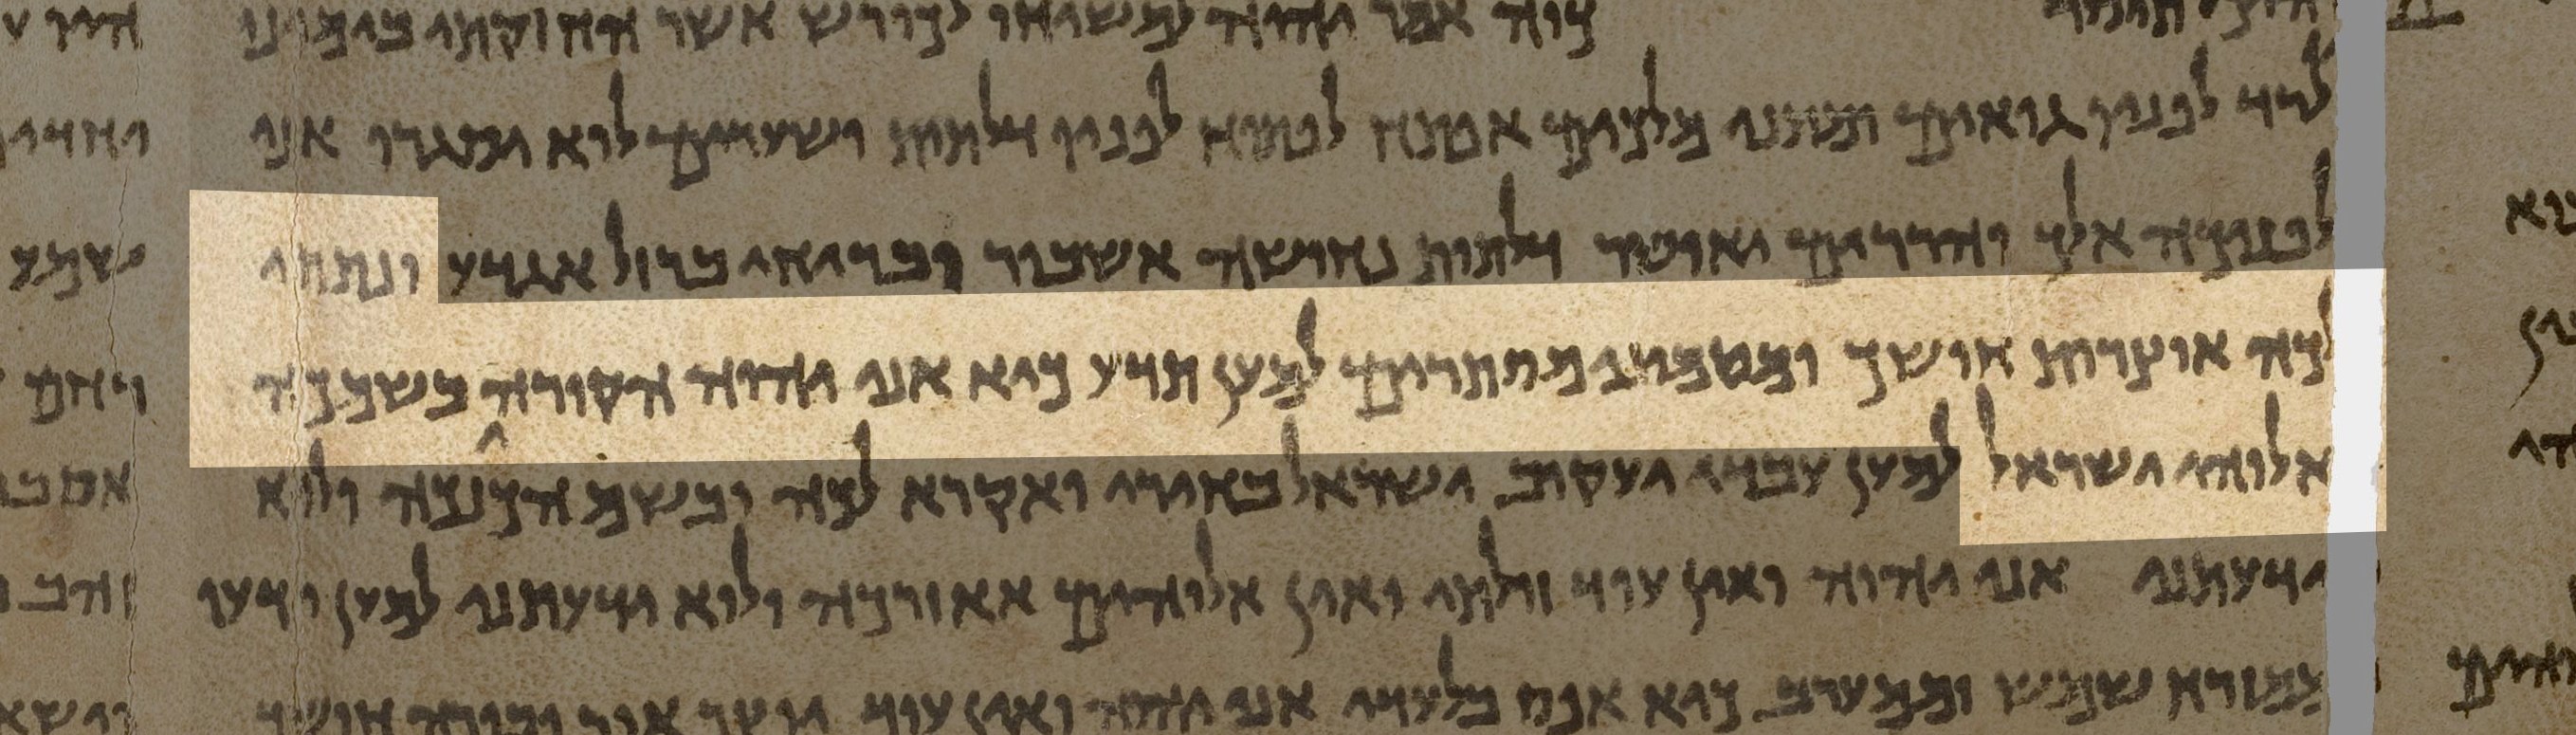 כוה אמר יהוה למשיחו לכורש אשר החזקתי בימינו
לרד לפניו גואים ומתני מלכים אפתח לפתוח לפניו דלתות ושערים לוא יסגרו אני
לפניכה אלך והררים יאושר דלתות נחושה אשבור ובריחי ברזל אגדע ונתתי
לכה אוצרות חושך ומטמוני מסתרים למען תדע כיא אני יהוה הקורה בשמכה
אלוהי ישראל למען עבדי יעקוב ישראל בחירי ואקרא לכה ובשם הכינכה ולוא
ידעתני אני יהוה ואין עוד וזולתי ואין אלוהים אאזורכה ולוא ידעתני למען ידעו
ממזרח שמש וממערב כיא אפס בלעדי אני יהוה ואין עוד יוצר אור ובורה חושך